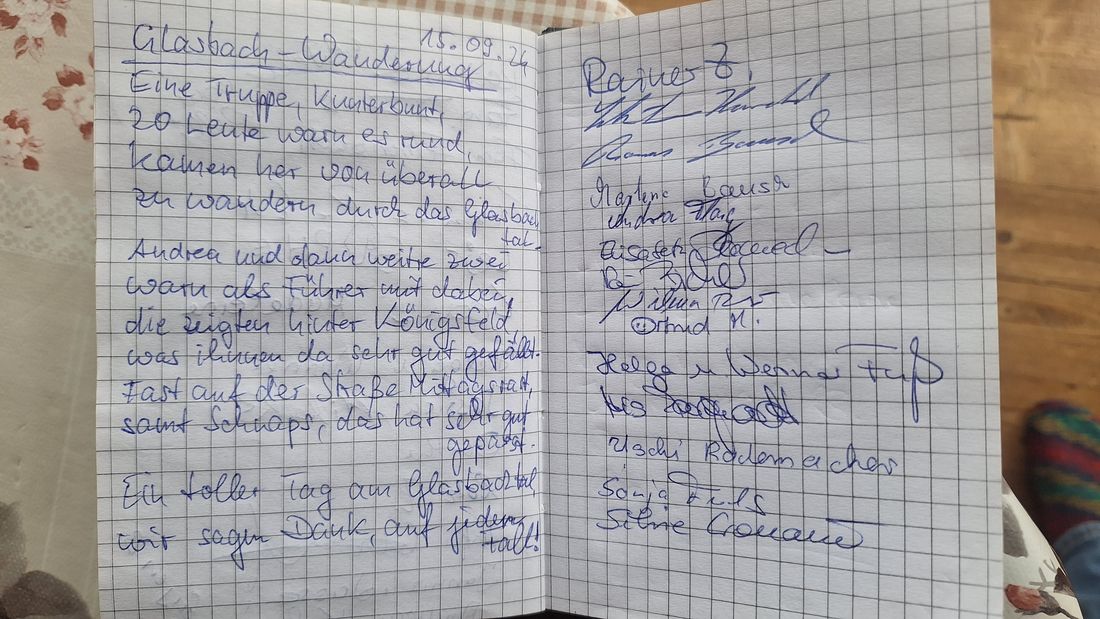 15.09.24
Glasbach-Wanderung
Eine Truppe, Kunterbunt,
20 Leute warn es rund,
kamen her von überall
zu wandern durch das Glasbach
tal.
Andrea und dann weitre zwei
warn als Führer mit dabei,
die zeigten hinter Königsfeld,
was ihnen da sehr gut gefällt.
Fast auf der Straße Mittagsrast,
samt Schnaps, das hat sehr gut
gepasst.
Ein toller Tag am Glasbachtal,
wir sagen Dank, auf jeden
Fall!
Rainer Z.
Marlene
Andrea
Elisabeth
Wilma
Ortrud H.
Helga u Werner Fuß
Uschi Rademacher
Sonja Fuß
Silvie